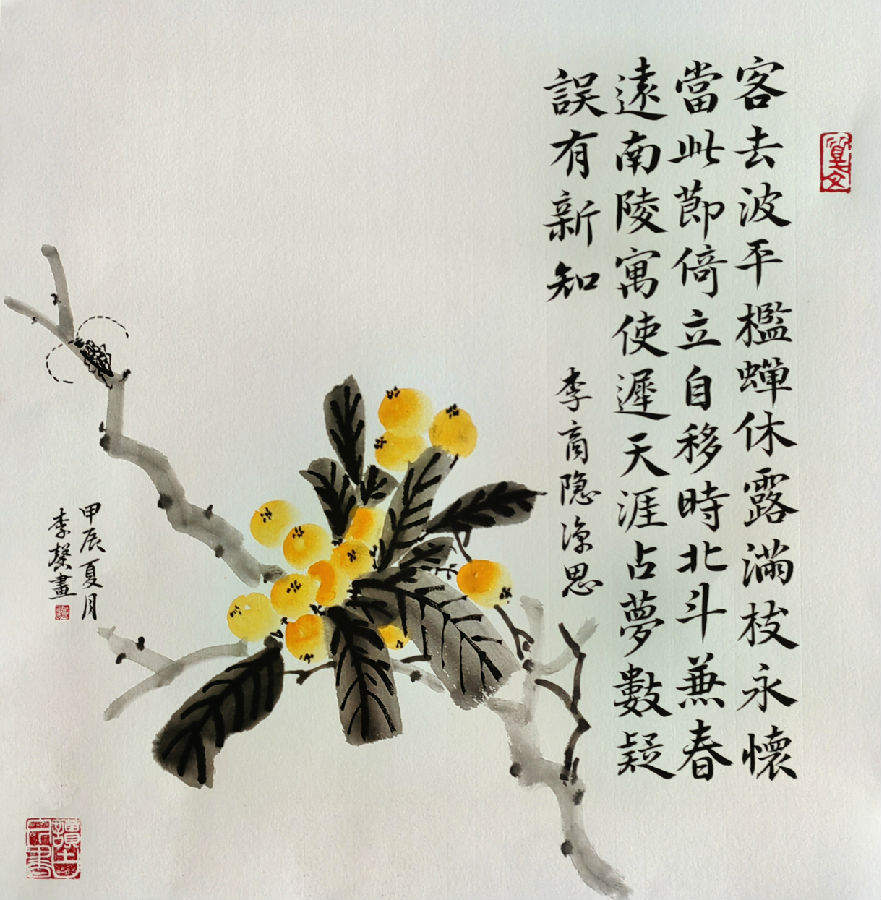 客去波平檻蟬休露滿枝永懷
當此節倚立自移時北斗兼春
遠南陵寓使遲天涯占夢數疑
誤有新知
李商隐凉思
甲辰夏月
李馨畫